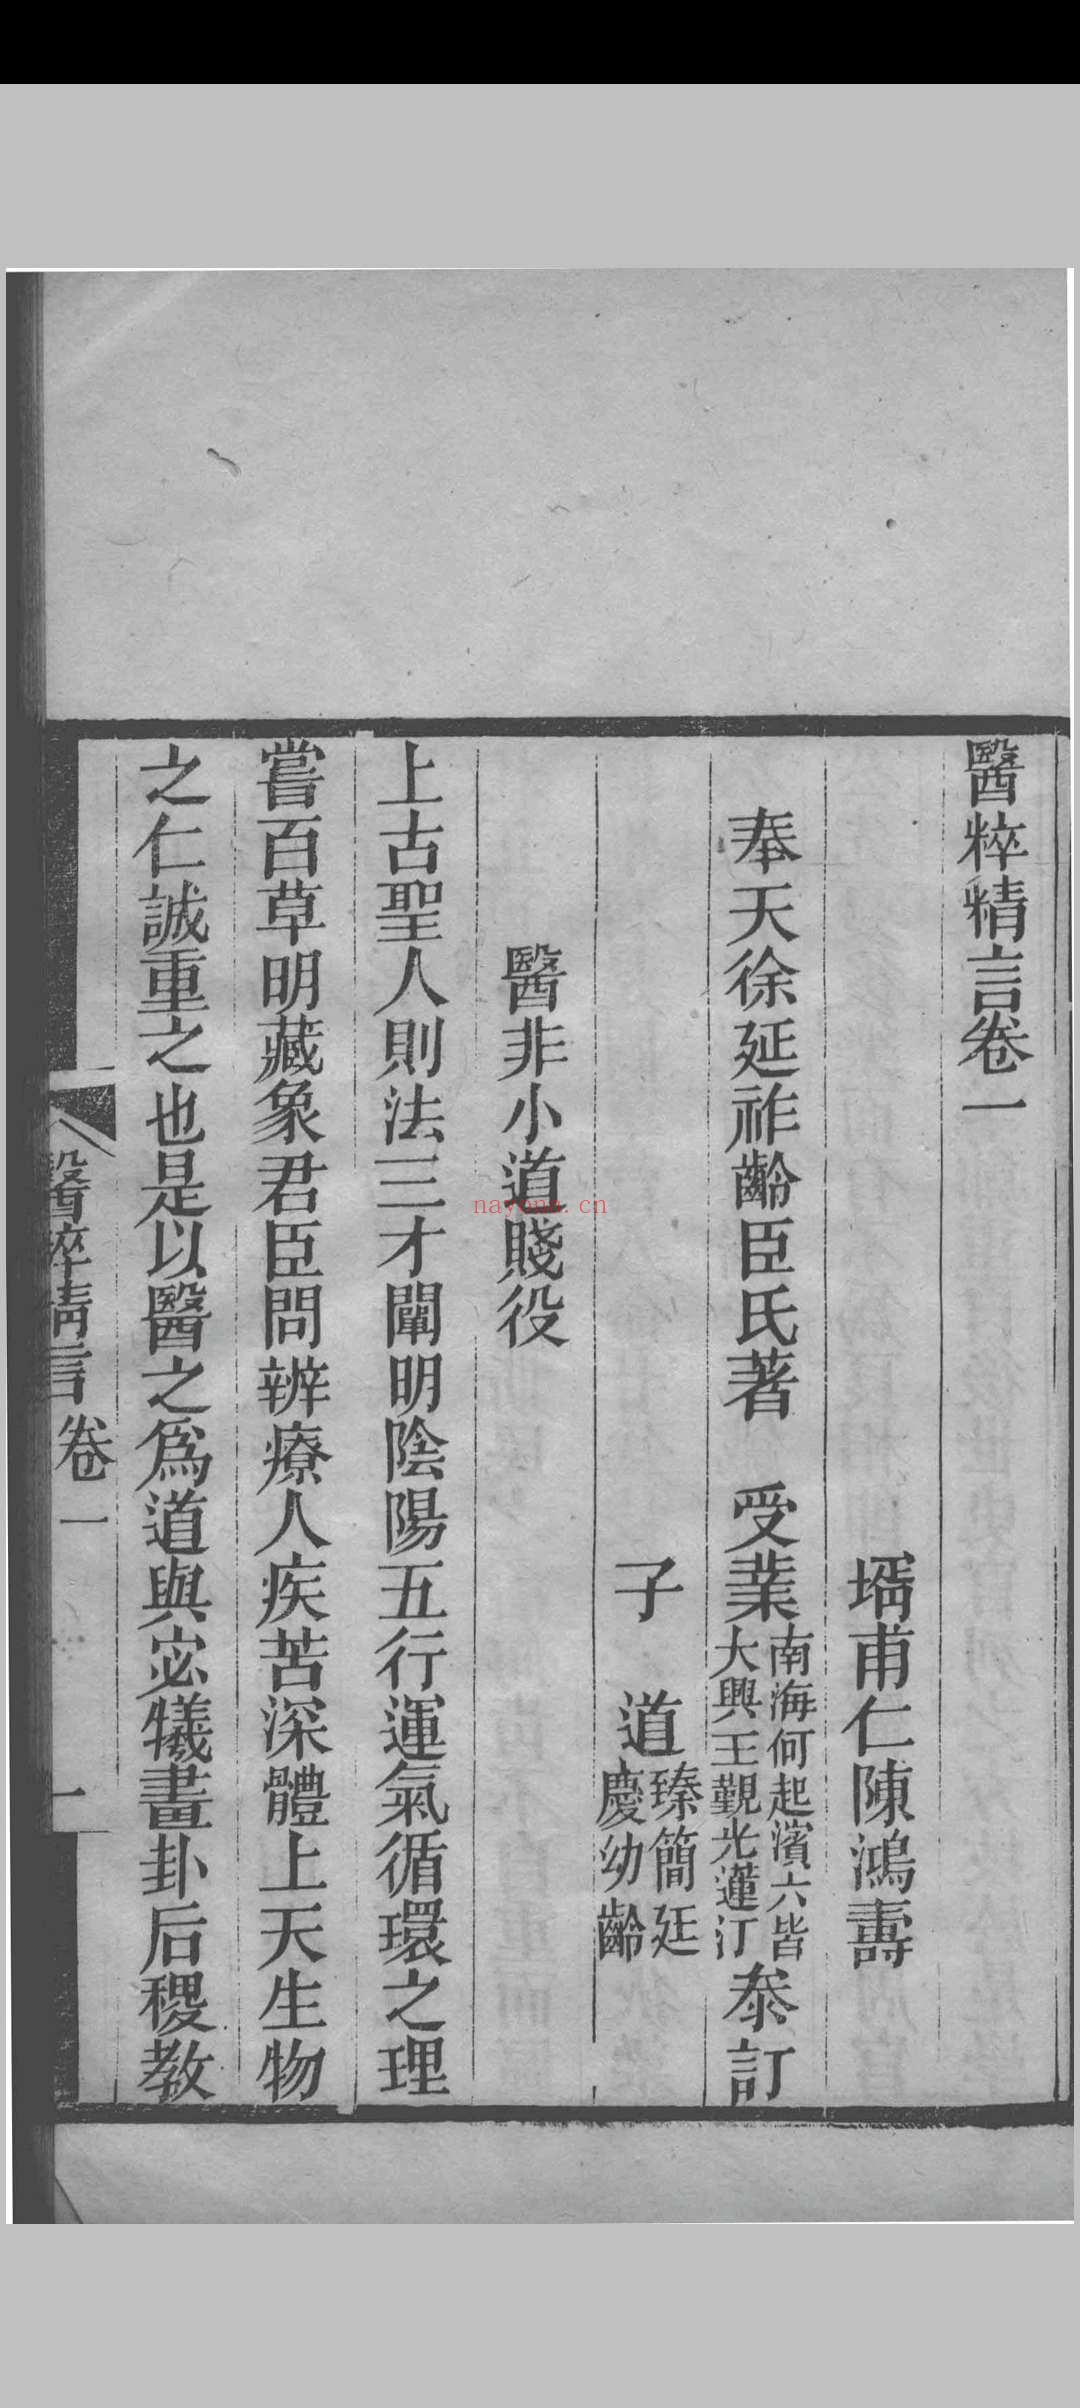 醫粹精言卷一
壻甫仁陳鴻壽
奉天徐延祚齡臣氏著 受業南海何起濱六皆大興王覲光蓮汀叅訂
子 道臻簡廷慶幼齡
醫非小道賤役
上古聖人則法三才闡明陰陽五行運氣循環之理
嘗百草明藏象君臣問辨療人疾苦深體上天生物
之仁誠重之也是以醫之爲道與宓犧畫卦后稷教
醫粹精言 卷一 一
nayona.cn